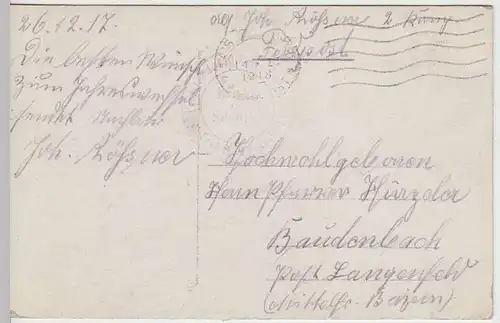 26.12.17.
Die besten Wünsche
zum Jahreswechsel
sendet
Joh. Rößner
Joh. Rößner 2 Komp
Feldpost
1918
Hochwohlgeboren
Herrn Pfarrer Hürzeler
Baudenbach
Post Langenfeld
(Mittelfr. Bayern)